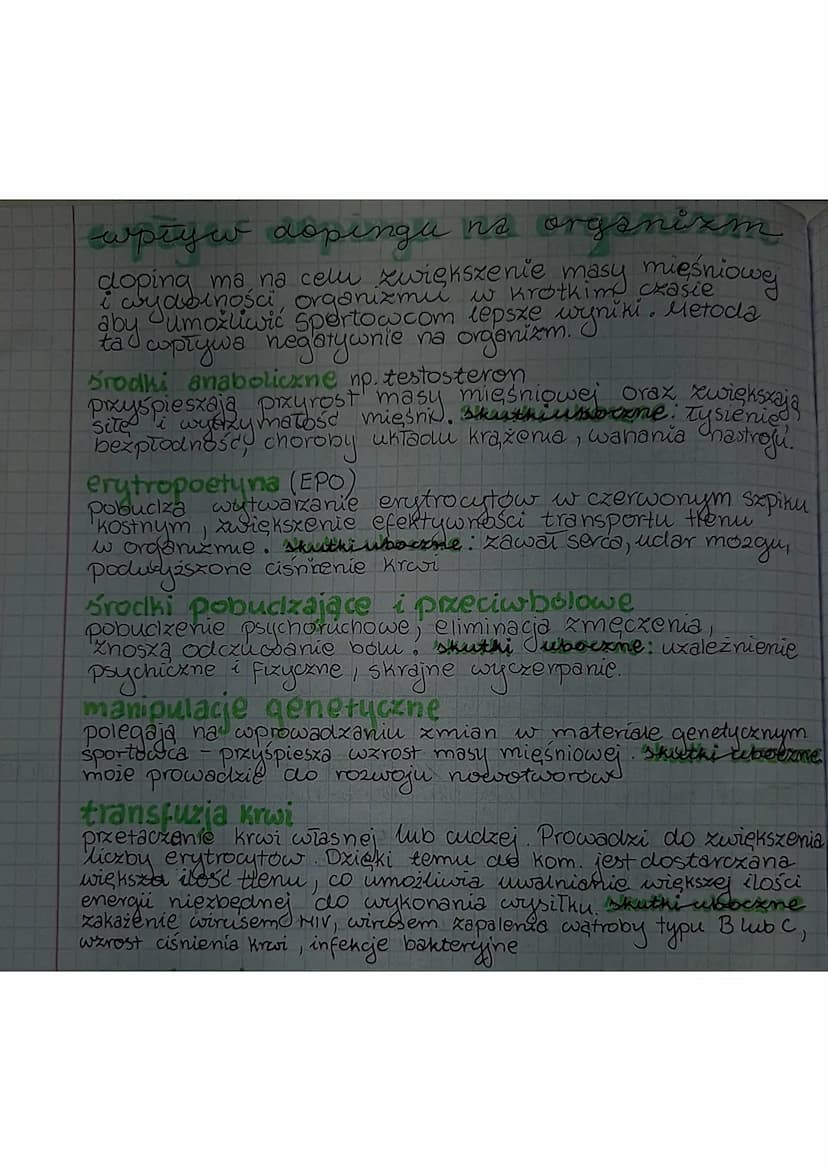 wpływ dopingu na organizm
doping ma na celu zwiększenie masy mięśniowej
i wydolności organizmu w krótkim czasie
aby umożliwić sportowcom lepsze wyniki. Metoda
ta wpływa negatywnie na organizm.
środki anaboliczne np. testosteron
przyśpieszają przyrost masy mięśniowej oraz zwiększają
siłę i wytrzymałość mięśni. skutki uboczne: łysienie,
bezpłodność, choroby układu krążenia, wahania nastroju.
erytropoetyna (EPO)
pobudza wytwarzanie erytrocytów w czerwonym szpiku
kostnym, zwiększenie efektywności transportu tlenu
w organizmie. skutki uboczne: zawał serca, udar mózgu,
podwyższone ciśnienie krwi
środki pobudzające i przeciwbólowe
pobudzenie psychoruchowe, eliminacja zmęczenia,
znoszą odczuwanie bólu. skutki uboczne: uzależnienie
psychiczne i fizyczne, skrajne wyczerpanie.
manipulacje genetyczne
polegają na wprowadzaniu zmian w materiale genetycznym
sportowca - przyśpiesza wzrost masy mięśniowej. skutki uboczne
może prowadzić do rozwoju nowotworów
transfuzja krwi
przetaczanie krwi własnej lub cudzej. Prowadzi do zwiększenia
liczby erytrocytów. Dzięki temu do kom. jest dostarczana
większa ilość tlenu, co umożliwia uwalnianie większej ilości
energii niezbędnej do wykonania wysiłku. skutki uboczne
zakażenie wirusem HIV, wirusem zapalenia wątroby typu B lub C,
wzrost ciśnienia krwi, infekcje bakteryjne